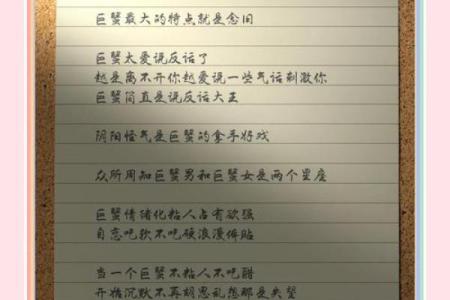 巨蟹最大的特点就是念旧
巨蟹太爱说反话了
越是离不开你越爱说一些气话刺激你
巨蟹简直是说反话大王
阴阳怪气是巨蟹的拿手好戏
众所周知巨蟹男和巨蟹女是两个星座
巨蟹情绪化粘人占有欲强
自恋吃软不吃硬浪漫体贴
当一个巨蟹不粘人不吃醋
开始沉默不再胡思乱想那是失望